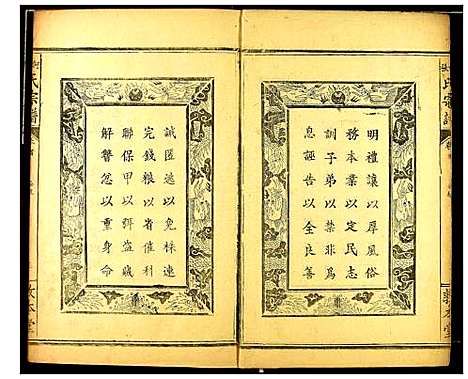 明禮讓以厚風俗
務本業以定民志
訓子弟以禁非為
息誣告以全良善
誡匿逃以免株連
完錢粮以省催科
聯保甲以弭盗賊
解讐忿以重身命
氏宗譜